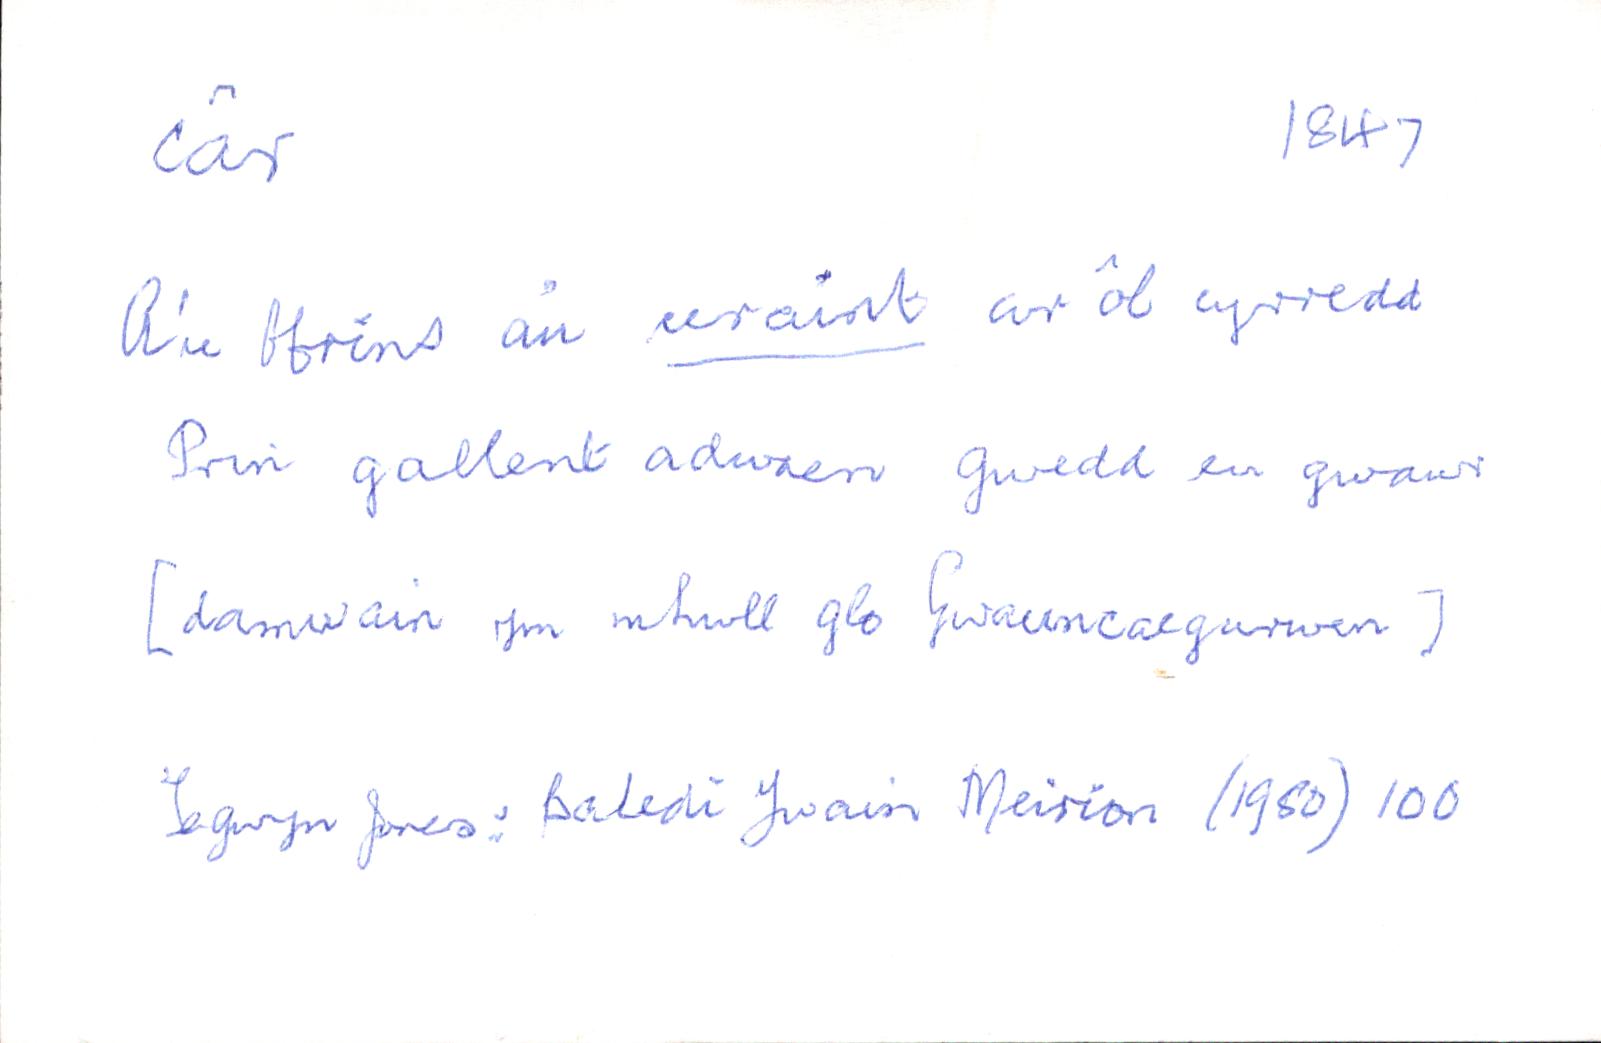 câr 1847
A'u ffrins a'u ceraint ar ôl cyrredd
Prin gallent adwaen gwedd eu gwawr
[damwain ym mhwll glo Gwauncaegurwen]
Tegwyn Jones: Baledi Ywain Meirion (1980) 100